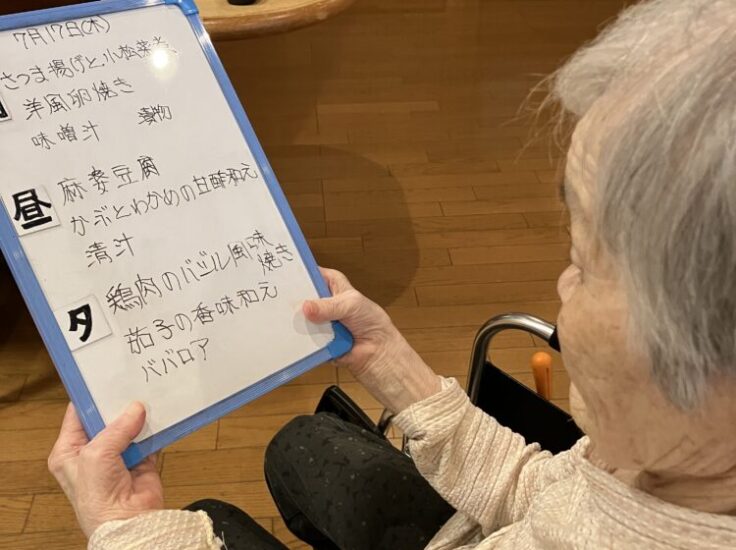 7月17日(木)
さつま揚げと小松菜煮
洋風卵焼き
味噌汁 漬物
昼
麻婆豆腐
かぶとわかめの甘酢和え
清汁
夕
鶏肉のバジル風味
焼き
茄子の香味和え
ババロア